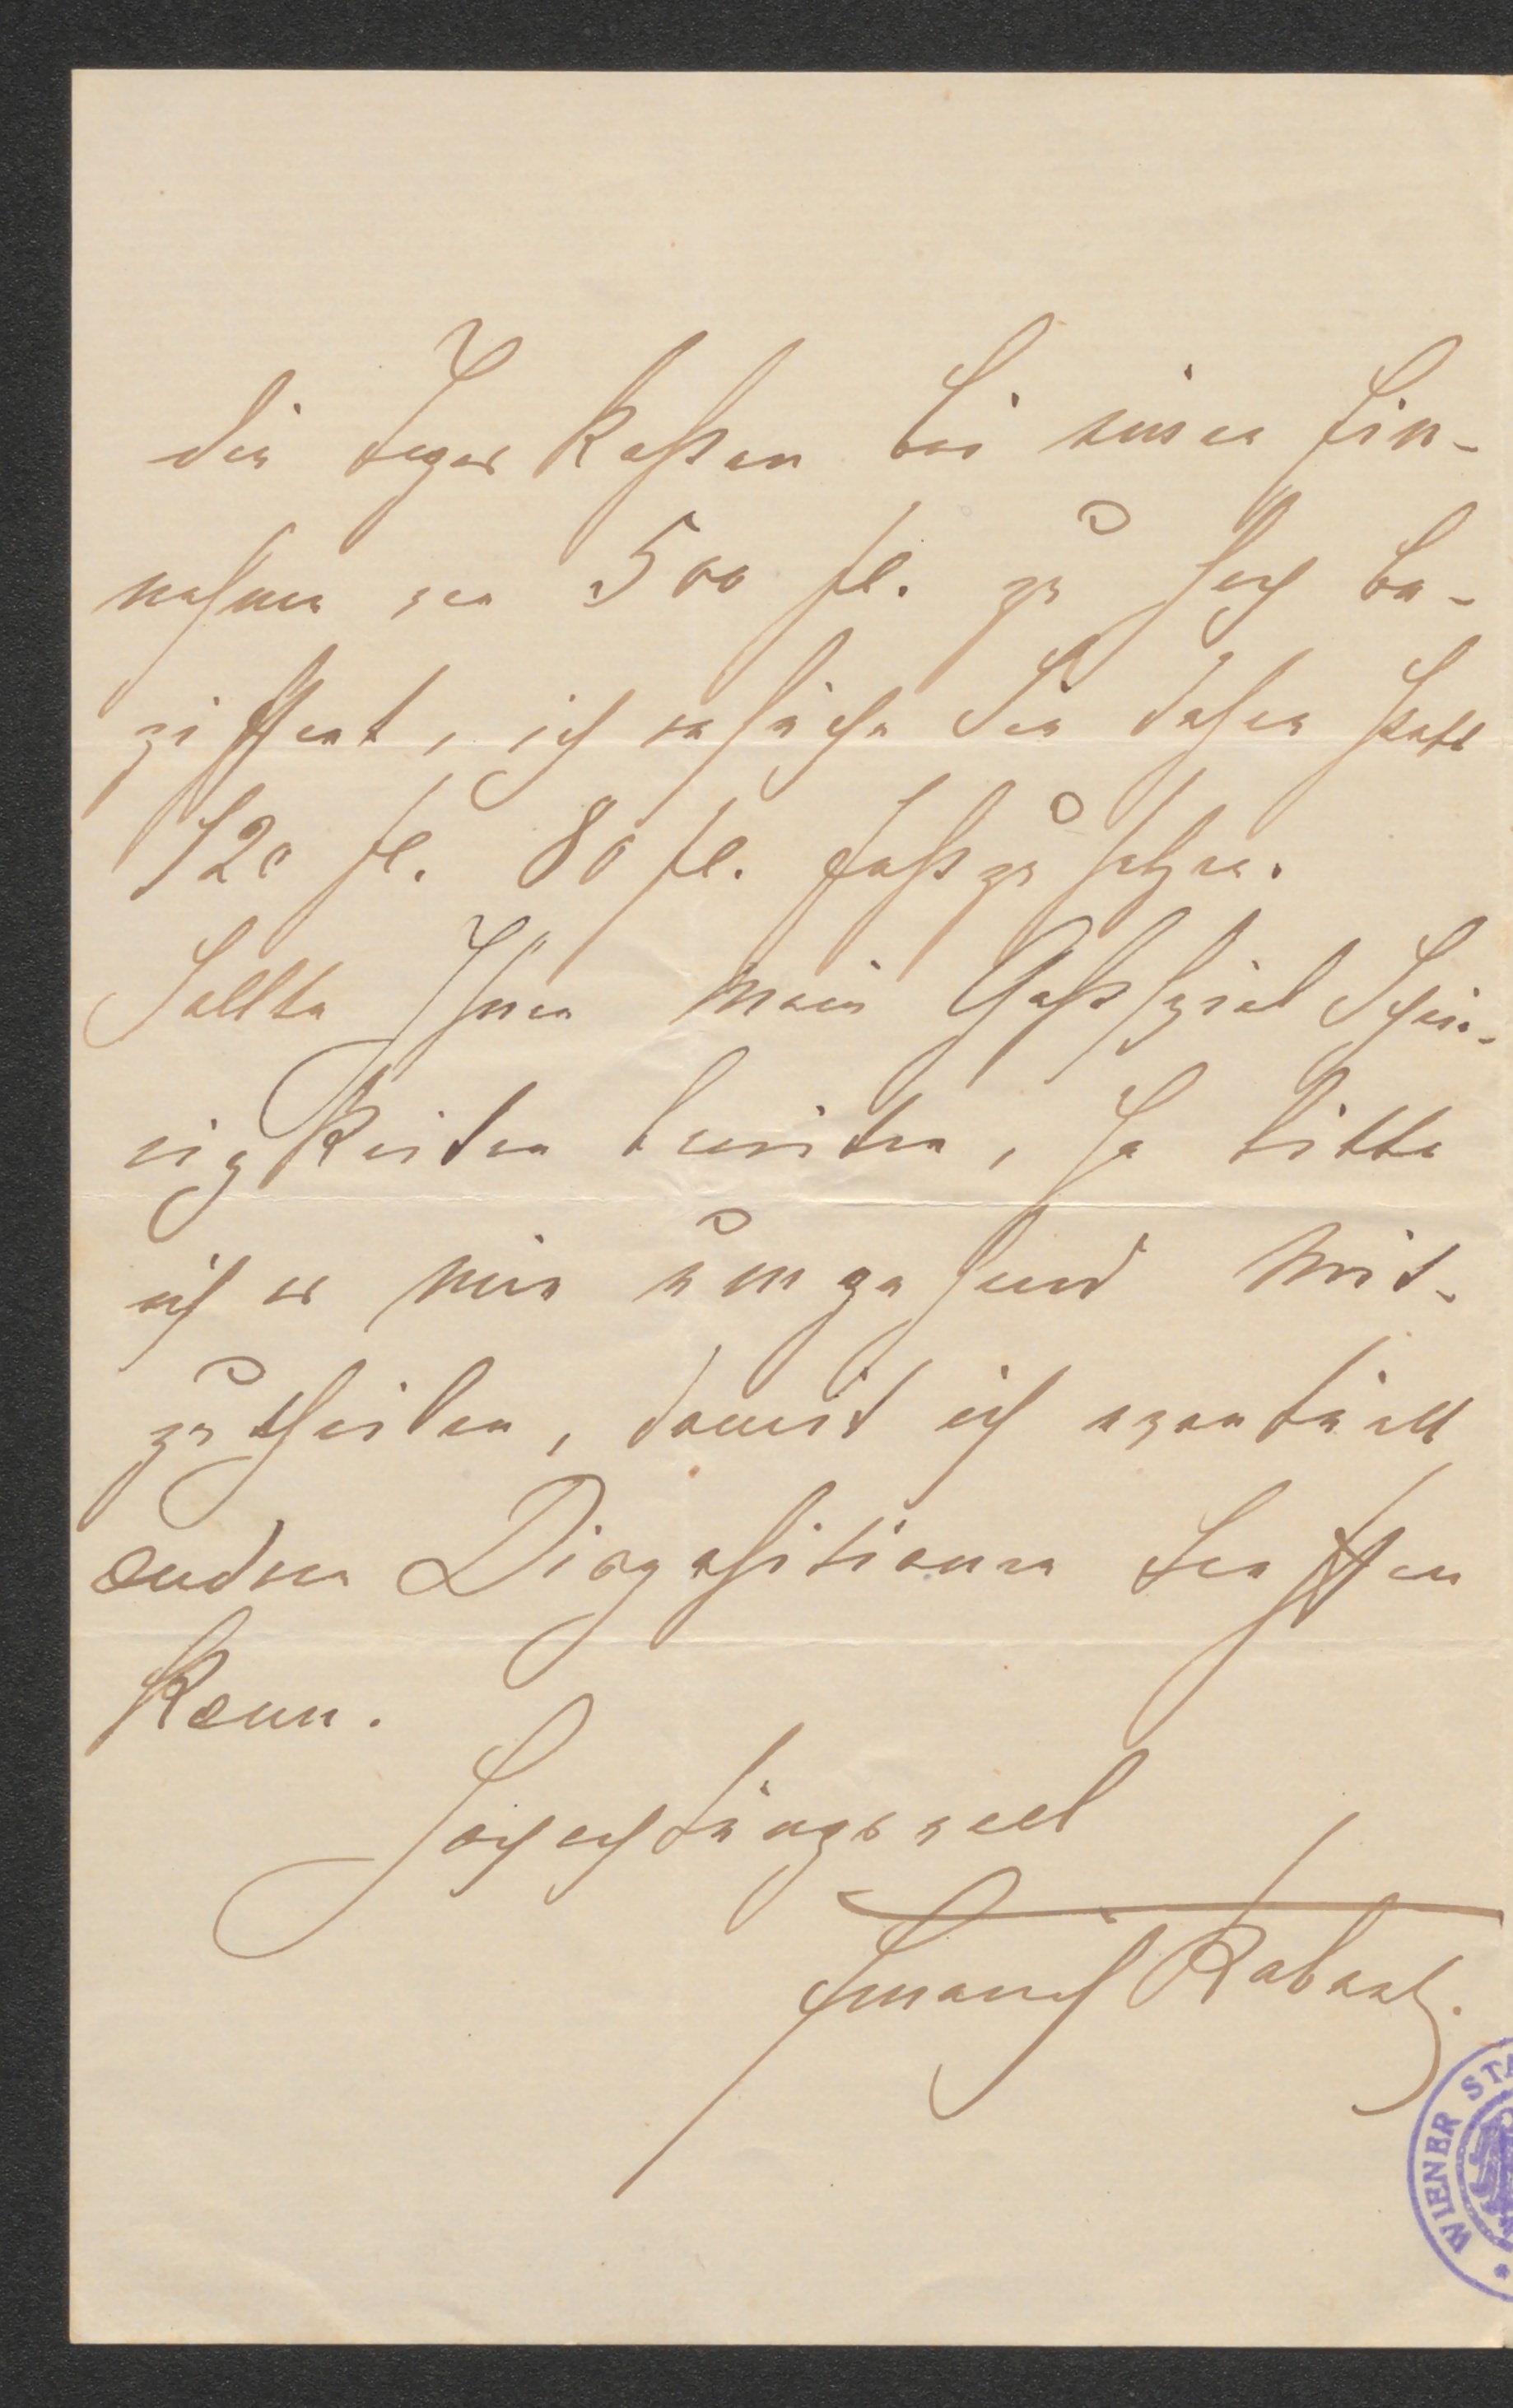 die Tages Kosten bei einer Ein-
nahme von 500 fl. zu hoch be-
ziffert, ich ersuche Sie daher statt
120 fl. 80 fl. festzusetzen.
Sollte Ihnen mein Gastspiel Schwie-
rigkeiten bereiten, so bitte
ich es mir umgehend mit-
zutheilen, damit ich eventuell
andere Dispositionen treffen
kann.
Hochachtungsvoll
Emerich Robert.
WIENER STA